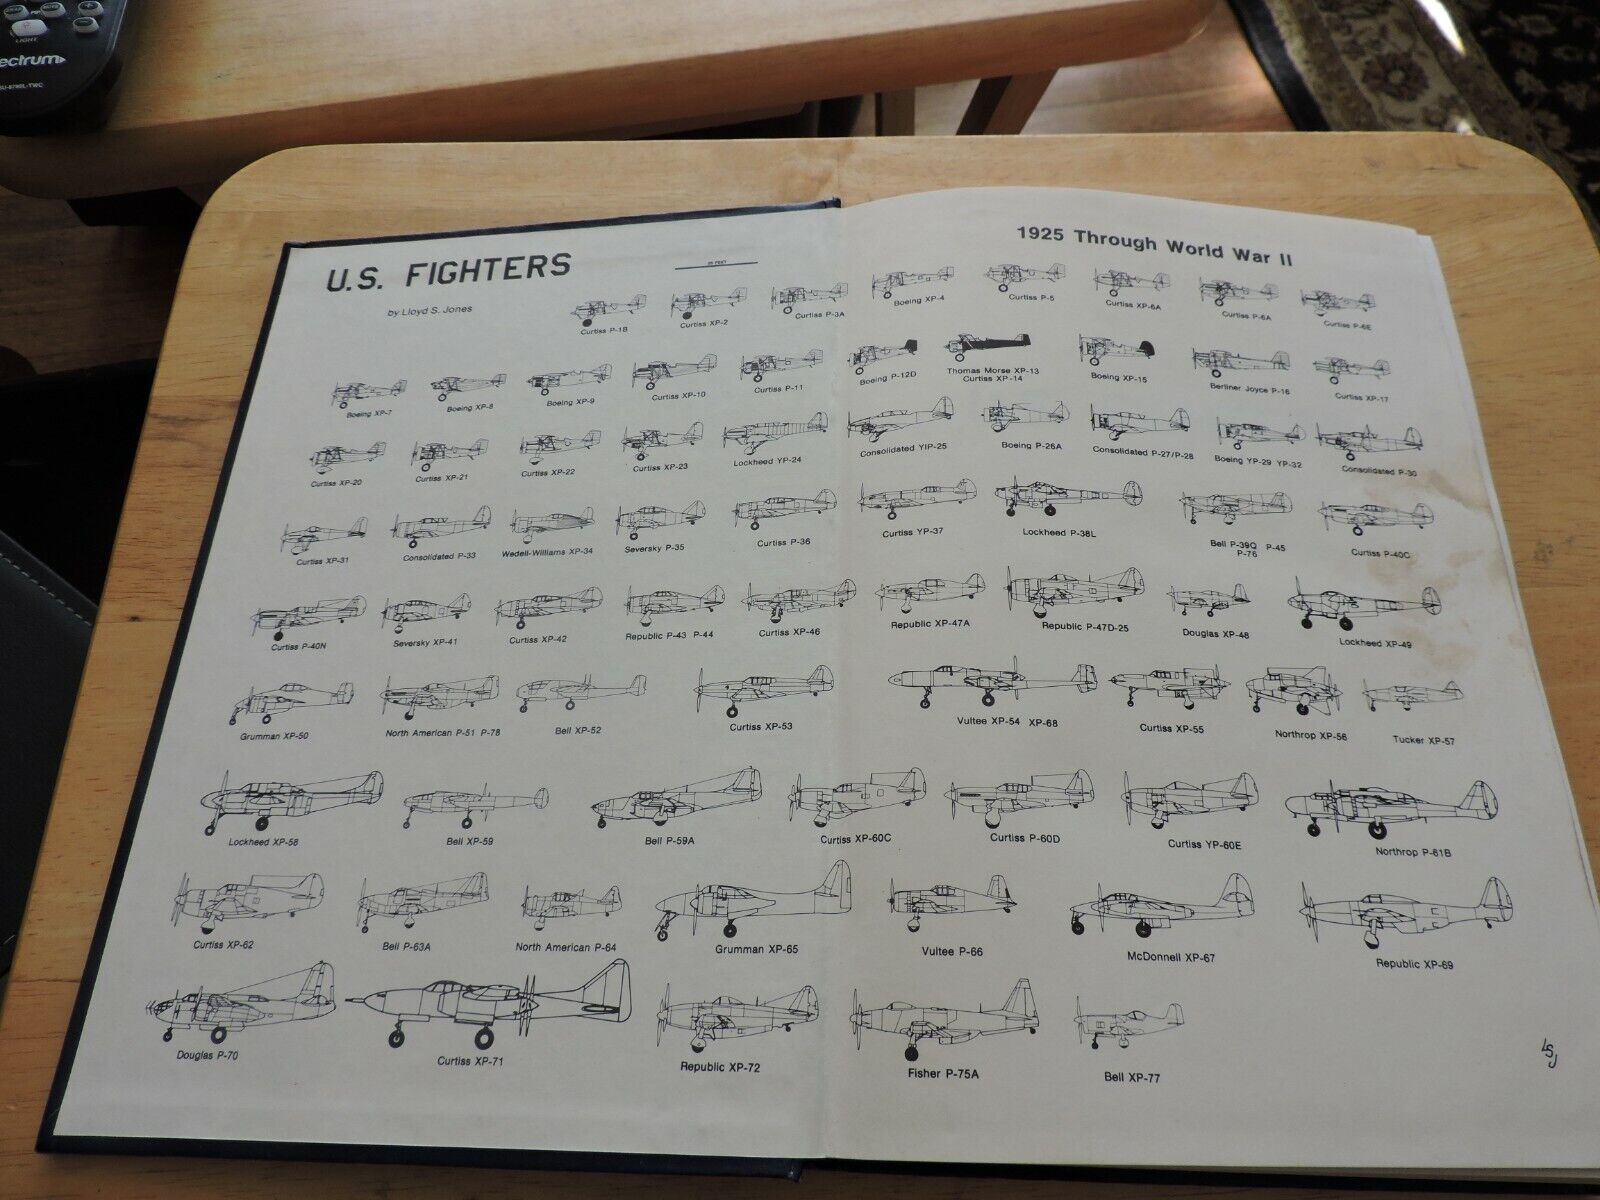 LIGHT
ectrum
U.S. FIGHTERS
by Lloyd S. Jones
1925 Through World War II
Curtiss P-1B
Curtiss XP-2
Curtiss P-3A
Boeing XP-4
Curtiss P-5
Curtiss XP-6A
Curtiss P-6A
Curtiss P-6E
Boeing XP-7
Boeing XP-8
Boeing XP-9
Curtiss XP-10
Curtiss P-11
Boeing P-12D
Thomas Morse XP-13
Curtiss XP-14
Boeing XP-15
Berliner Joyce P-16
Curtiss XP-17
Curtiss XP-20
Curtiss XP-21
Curtiss XP-22
Curtiss XP-23
Lockheed YP-24
Consolidated YIP-25
Boeing P-26A
Consolidated P-27/P-28
Boeing YP-29 YP-32
Consolidated P-30
Curtiss XP-31
Consolidated P-33
Wedell-Williams XP-34
Seversky P-35
Curtiss P-36
Curtiss YP-37
Lockheed P-38L
Bell P-39Q P-45
P-76
Curtiss P-40C
Curtiss P-40N
Seversky XP-41
Curtiss XP-42
Republic P-43 P-44
Curtiss XP-46
Republic XP-47A
Republic P-47D-25
Douglas XP-48
Lockheed XP-49
Grumman XP-50
North American P-51 P-78
Bell XP-52
Curtiss XP-53
Vultee XP-54 XP-68
Curtiss XP-55
Northrop XP-56
Tucker XP-57
Lockheed XP-58
Bell XP-59
Bell P-59A
Curtiss XP-60C
Curtiss P-60D
Curtiss YP-60E
Northrop P-61B
Curtiss XP-62
Bell P-63A
North American P-64
Grumman XP-65
Vultee P-66
McDonnell XP-67
Republic XP-69
Douglas P-70
Curtiss XP-71
Republic XP-72
Fisher P-75A
Bell XP-77
LSJ